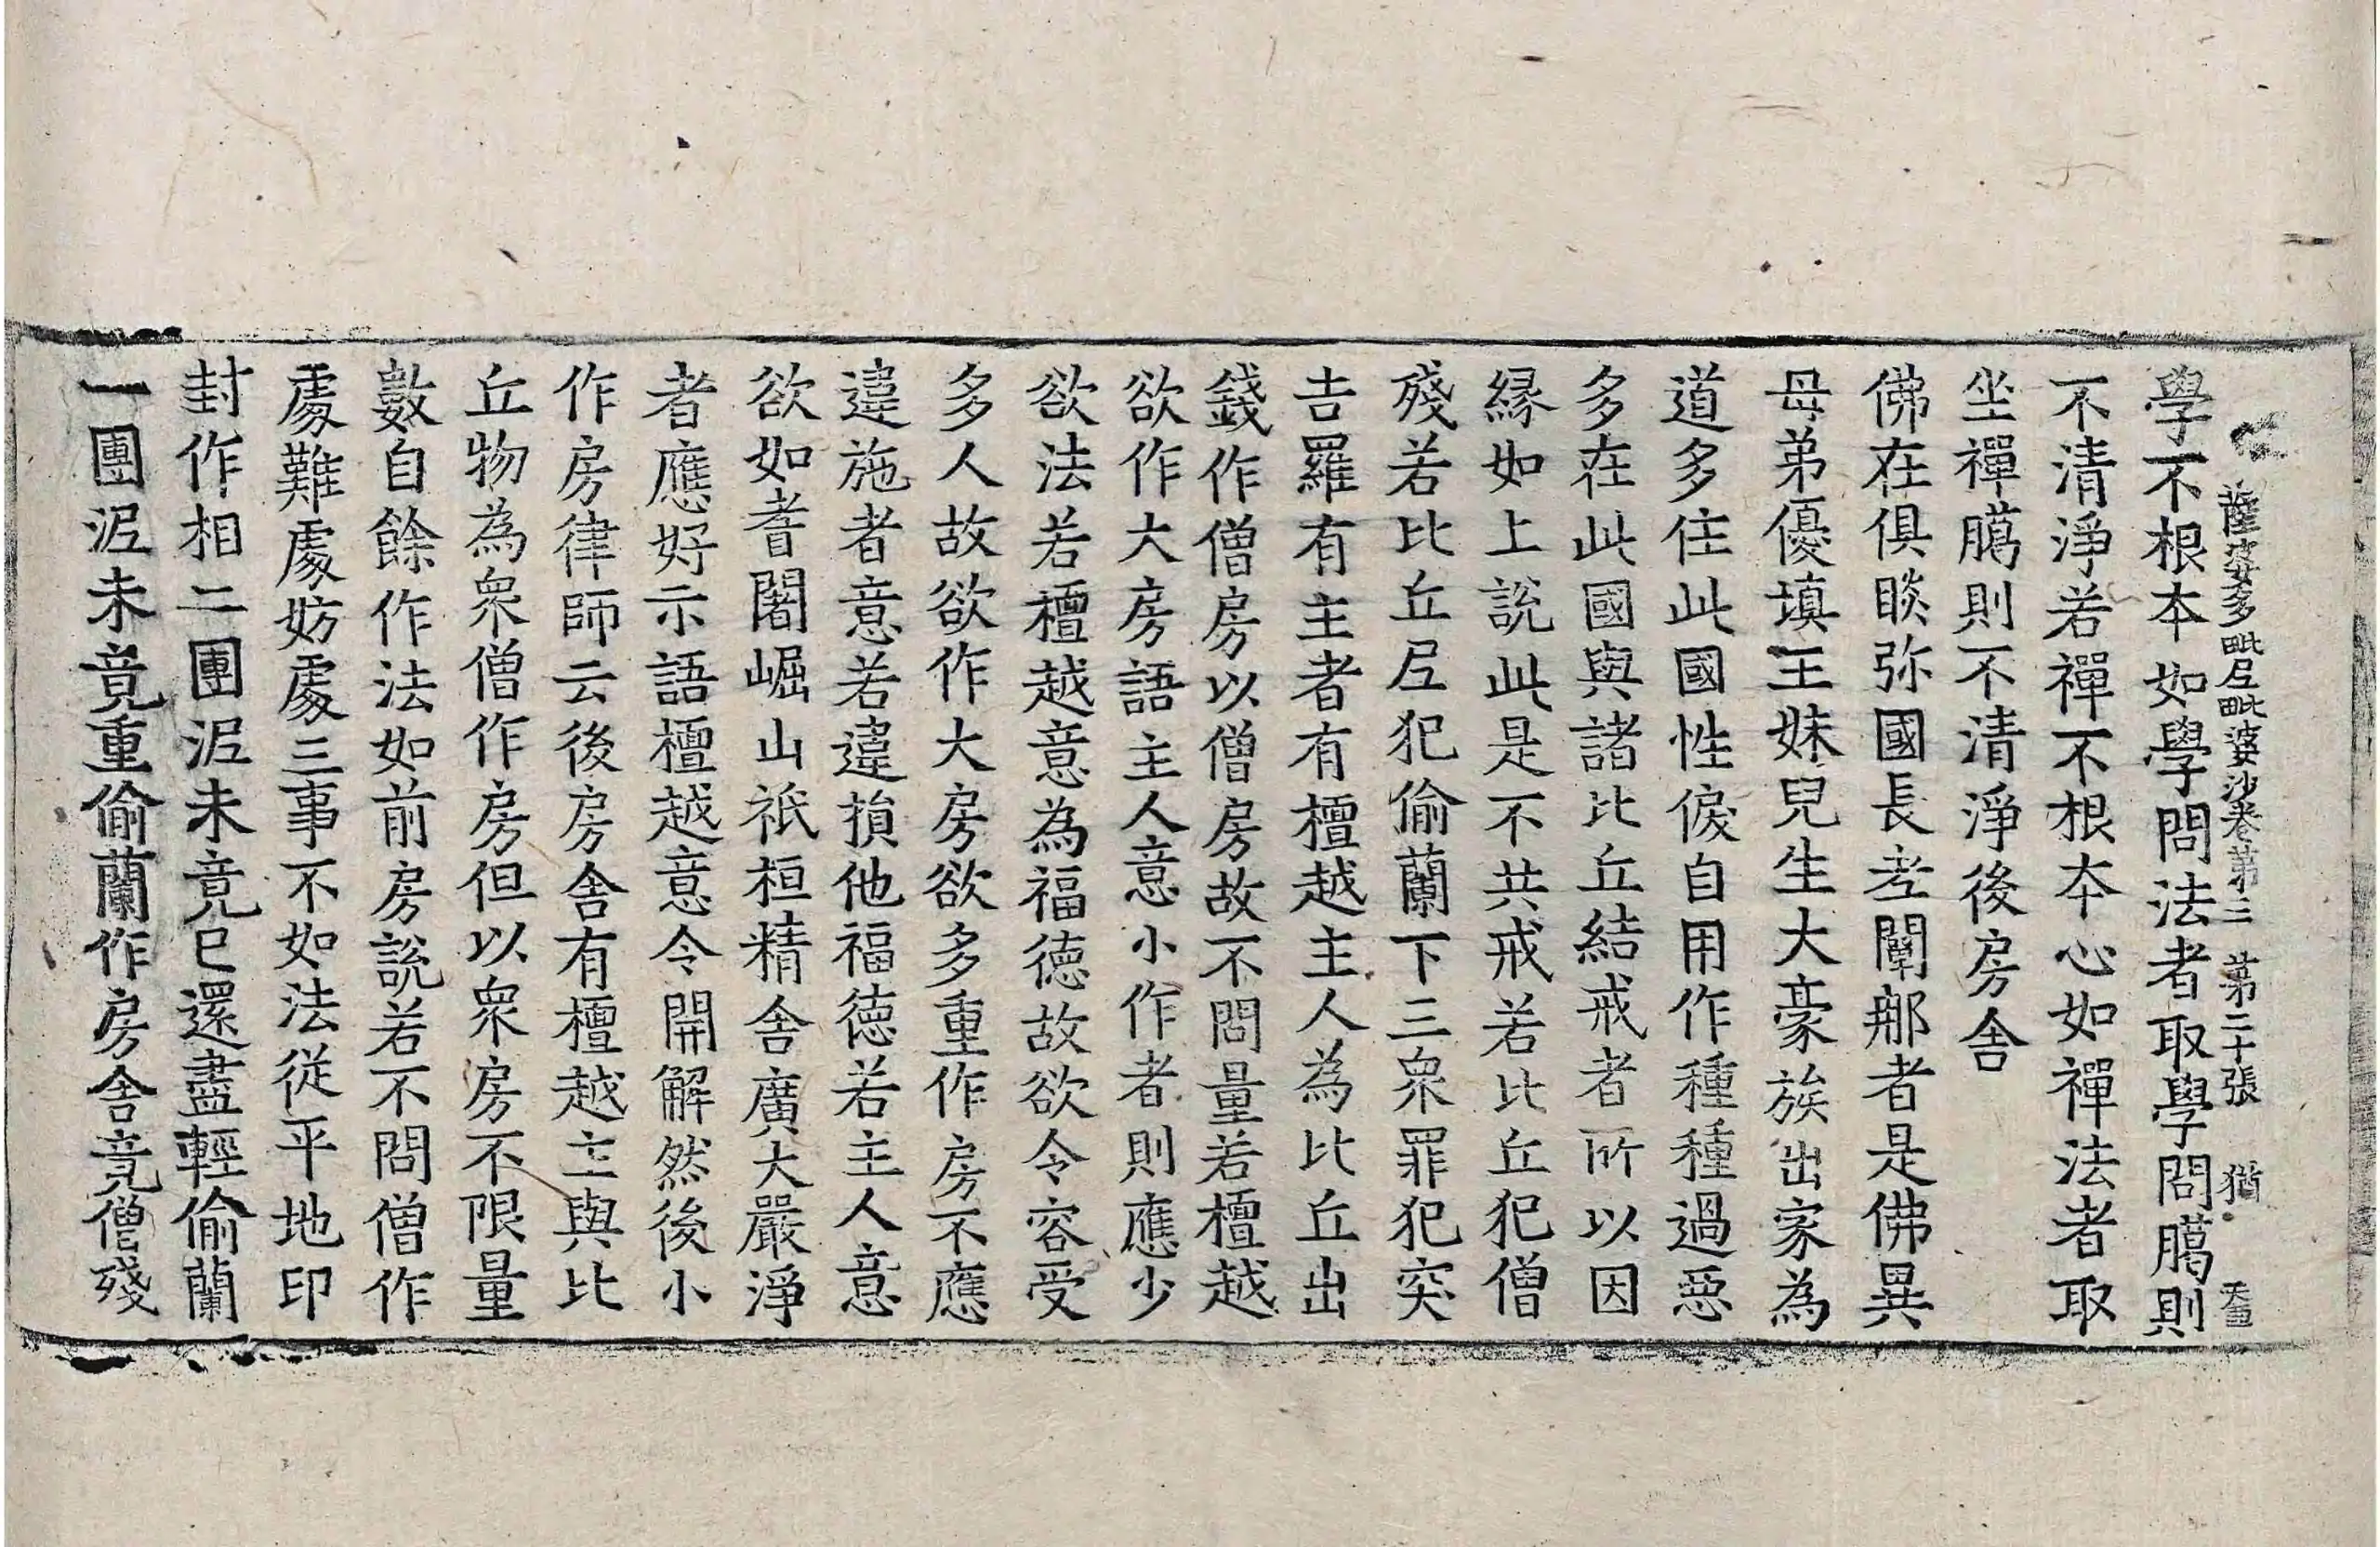 薩婆多毗尼毗婆沙卷第三 第二十張 猶
學不根本如學問法者取學問臈則
不清淨若禪不根本心如禪法者取
坐禪臈則不清淨後房舍
佛在俱睒弥國長老闡那者是佛異
母弟優填王妹兒生大豪族出家為
道多住此國性㑦自用作種種過惡
多在此國與諸比丘結戒者所以因
縁如上說此是不共戒若比丘犯僧
殘若比丘尼犯偷蘭下三眾罪犯突
吉羅有主者有檀越主人為比丘出
錢作僧房以僧房故不問量若檀越
欲作大房語主人意小作者則應少
欲法若檀越意為福德故欲令容受
多人故欲作大房欲多重作房不應
違施者意若違損他福德若主人意
欲如耆闍崛山祇桓精舍廣大嚴淨
者應好示語檀越意令開解然後小
作房律師云後房舍有檀越主與比
丘物為眾僧作房但以眾房不限量
數自餘作法如前房說若不問僧作
處難處妨處三事不如法從平地印
封作相二團泥未竟已還盡輕偷蘭
一團泥未竟重偷蘭作房舍竟僧殘